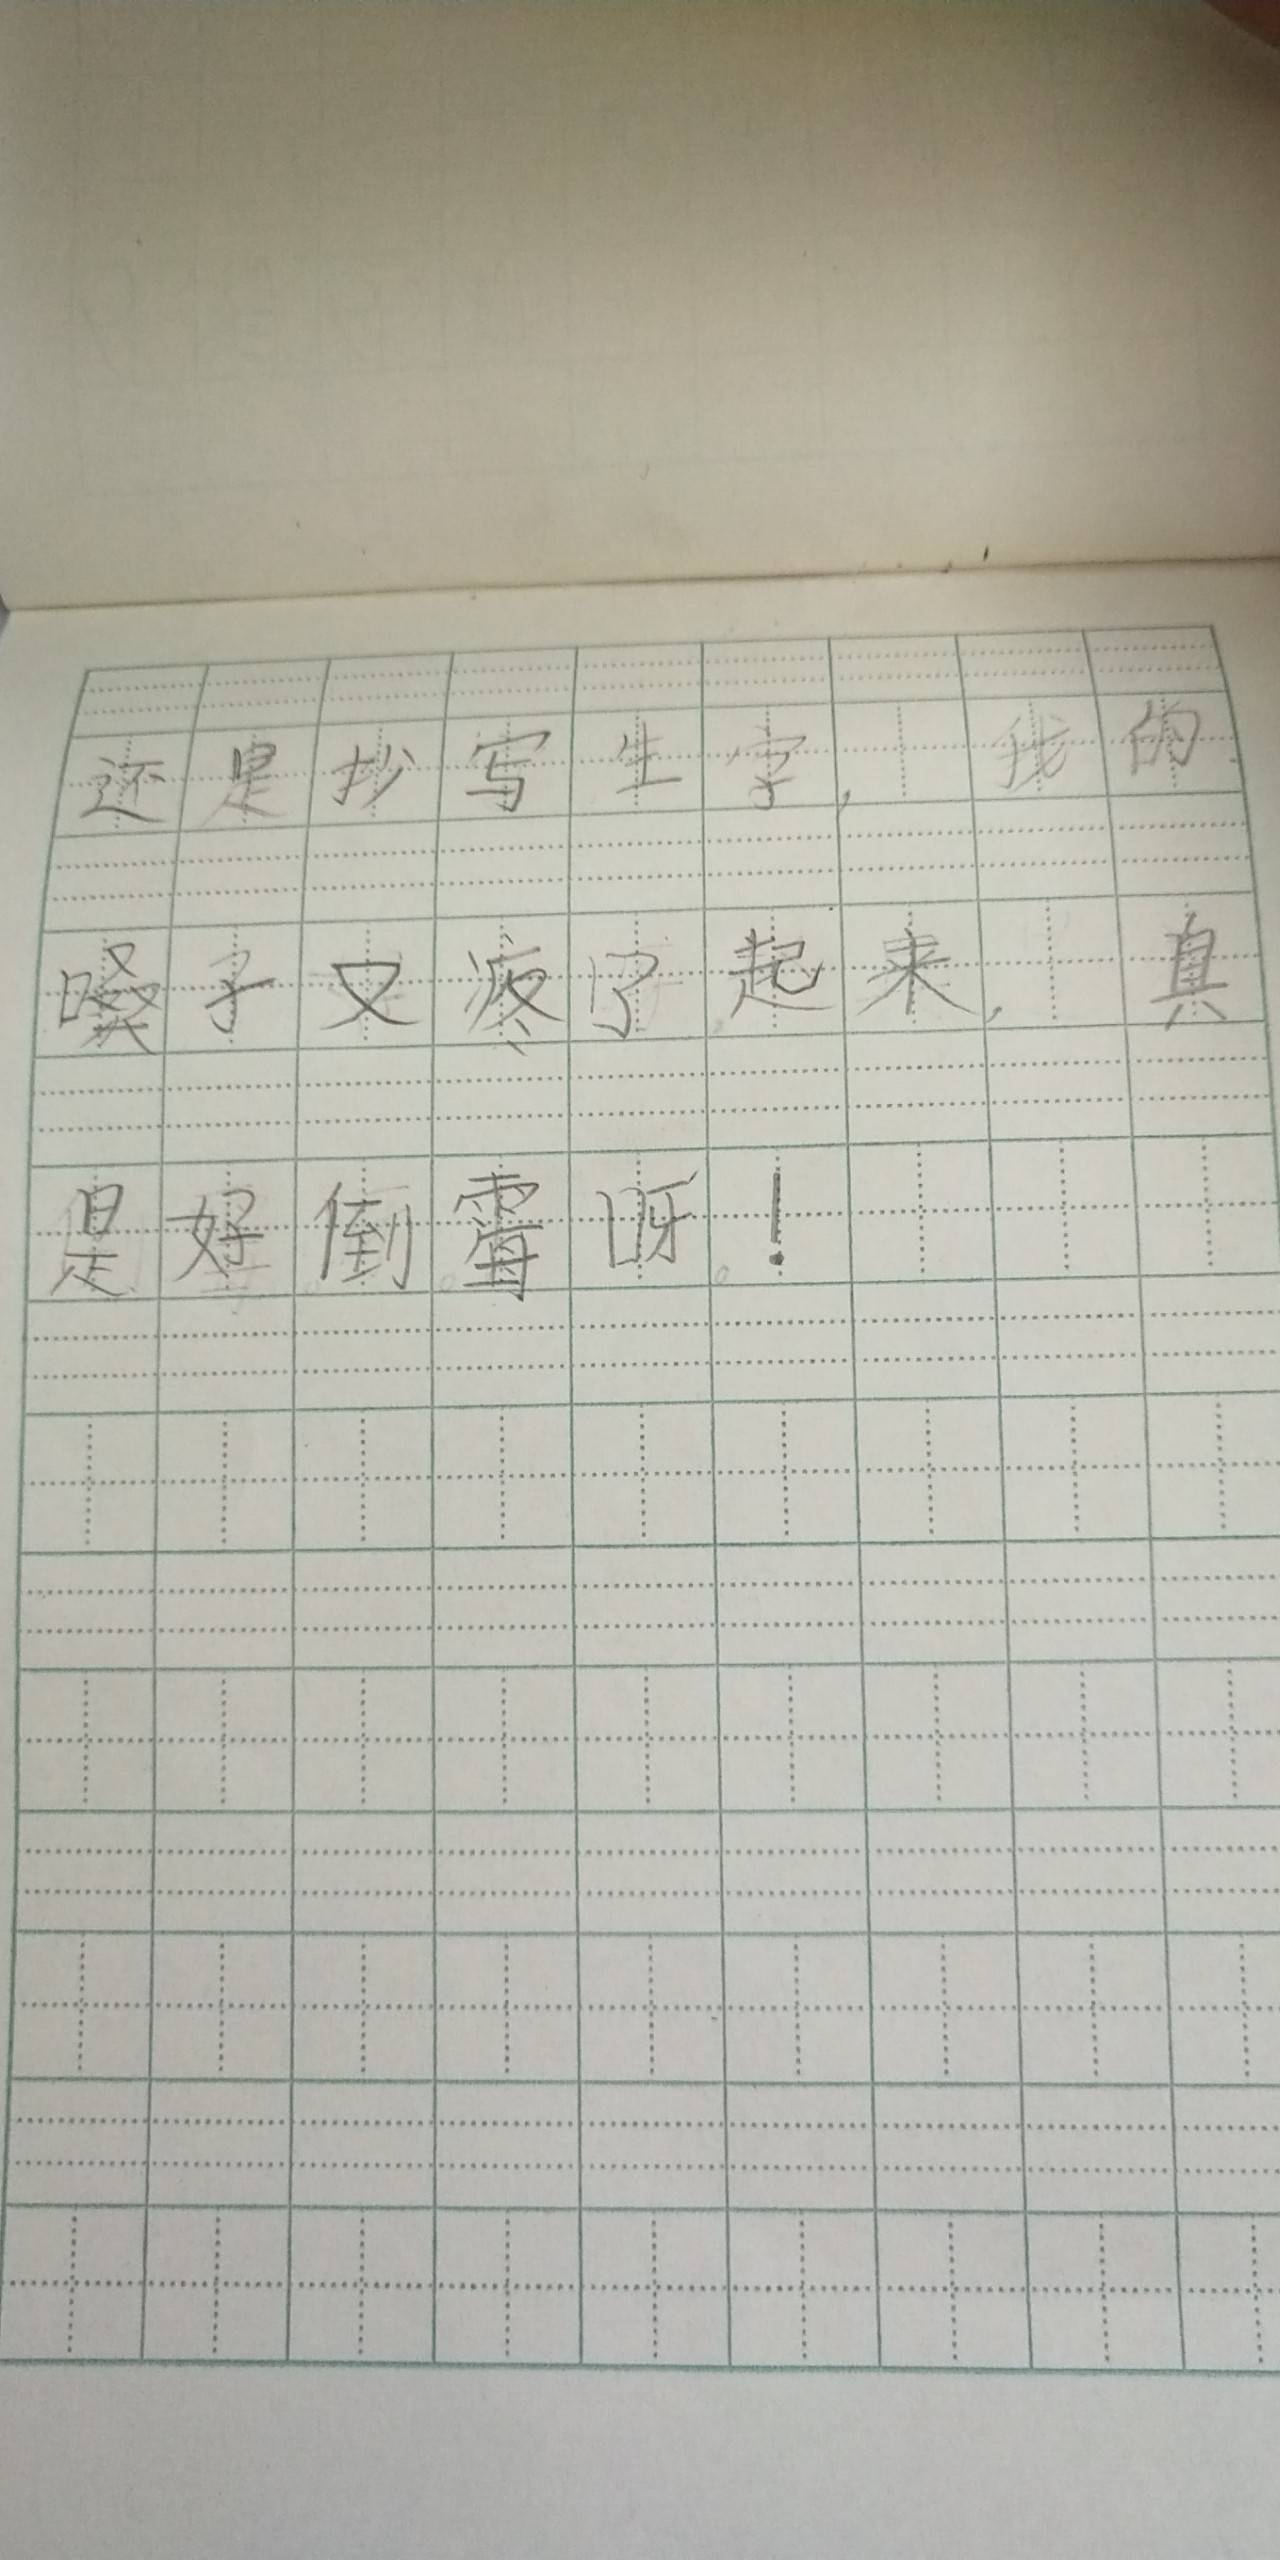 还是抄写生字，我的
嗓子又疼了起来，真
是好倒霉呀！